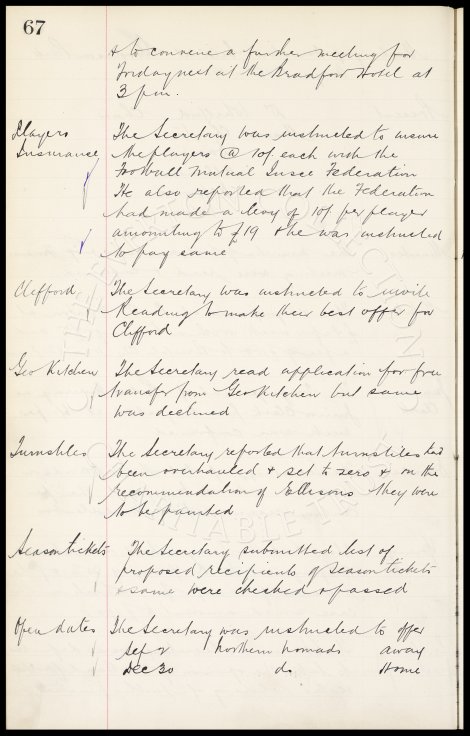 67
& to convene a further meeting for
Friday next at the Bradford Hotel at
3 pm.
Players Insurance
The Secretary was instructed to insure
the players @ 10/- each with the
Football Mutual Insce Federation
He also reported that the Federation
had made a levy of 10/- per player
amounting to £19 & he was instructed
to pay same
Clifford
The Secretary was instructed to invite
Reading to make their best offer for
Clifford
Geo Kitchen
The Secretary read application for free
transfer from Geo Kitchen but same
was declined
Turnstiles
The Secretary reported that turnstiles had
been overhauled & set to zero & on the
recommendation of Ellisons they were
to be painted
Season tickets
The Secretary submitted list of
proposed recipients of season tickets
& same were checked & passed
Open dates
The Secretary was instructed to offer
Sep 2 Northern Nomads away
Dec 30 do Home